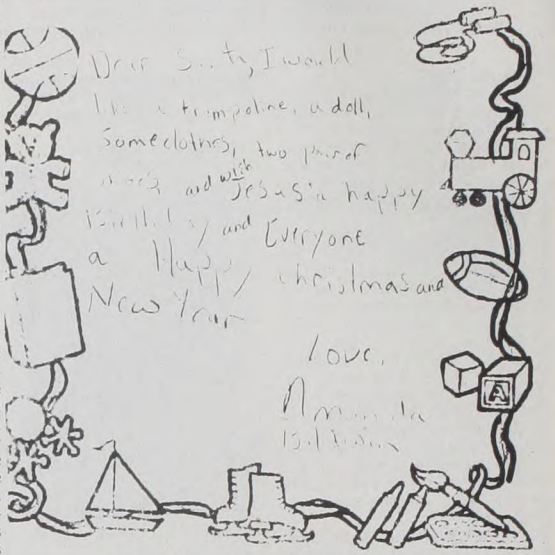 Dear Santy, I would
like a trampoline, a doll,
Some clothes, two pair of
shoes, and wish Jesus a happy
Birthday and Everyone
a Happy christmas and
New Year
love,
Amanda
A